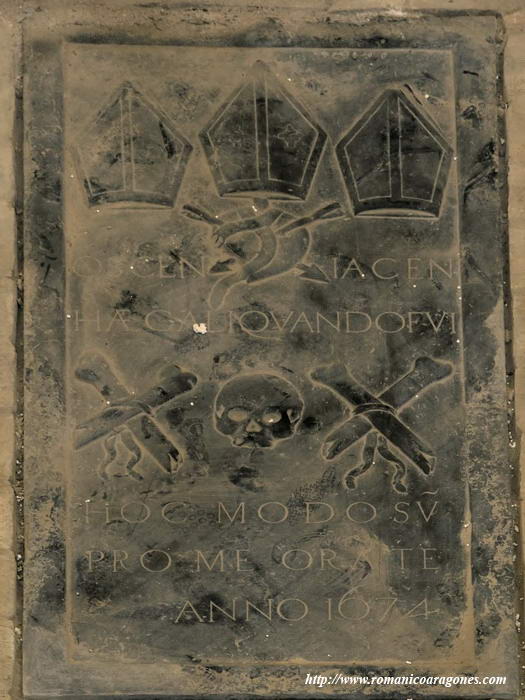 IACEN
HAC ALIQVANDO FVI
HOC MODO SV̄
PRO ME ORATE
ANNO 1674
http://www.romanicoaragones.com/